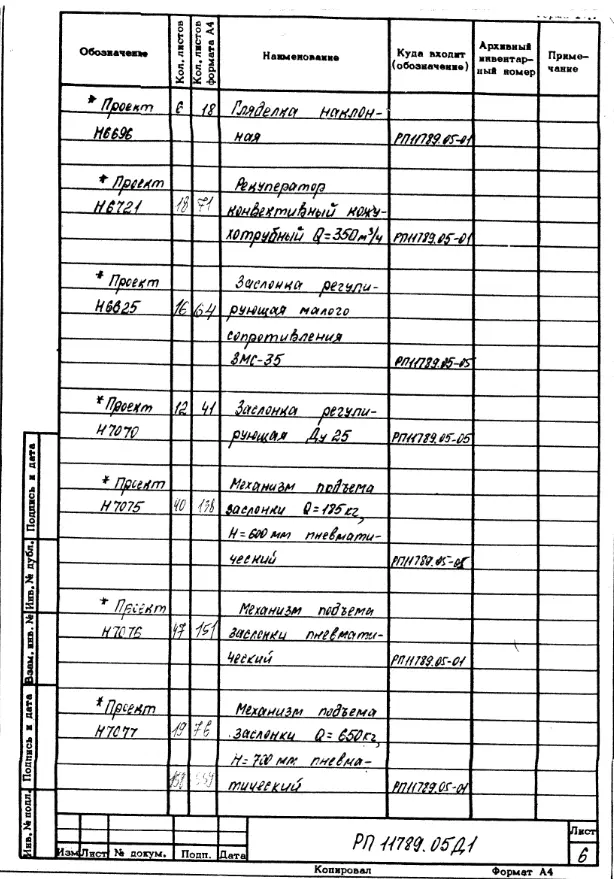 Обозначение Кол. листов Кол. листов формата А4 Наименование Куда входит (обозначение) Архивный инвентарный номер Примечание
* Проект 6 18 Гляделка наклон-
Н6696 ная РП11789.05-01
* Проект Рекуператор
Н6721 18 71 конвективный кожу-
хотрубный Q=350м³/ч РП11789.05-01
* Проект Заслонка регули-
Н6825 16 64 рующая малого
сопротивления
ЗМС-35 РП11789.05-05
* Проект 12 41 Заслонка регули-
Н7070 рующая Ду 25 РП11789.05-05
* Проект Механизм подъема
Н7075 40 заслонки Q=185кг,
Н=600мм пневмати-
ческий
* Проект Механизм подъема
Н7076 47 151 заслонки пневмати-
ческий РП11789.05-01
* Проект Механизм подъема
Н7077 19 76 заслонки Q=650кг,
Н=700мм пневма-
тический РП11789.05-01
Подпись и дата
Инв. № дубл.
Взам. инв. №
Подпись и дата
Инв. № подл.
РП 11789.05Д1 Лист
6
Изм Лист № докум. Подп. Дата
Копировал Формат А4